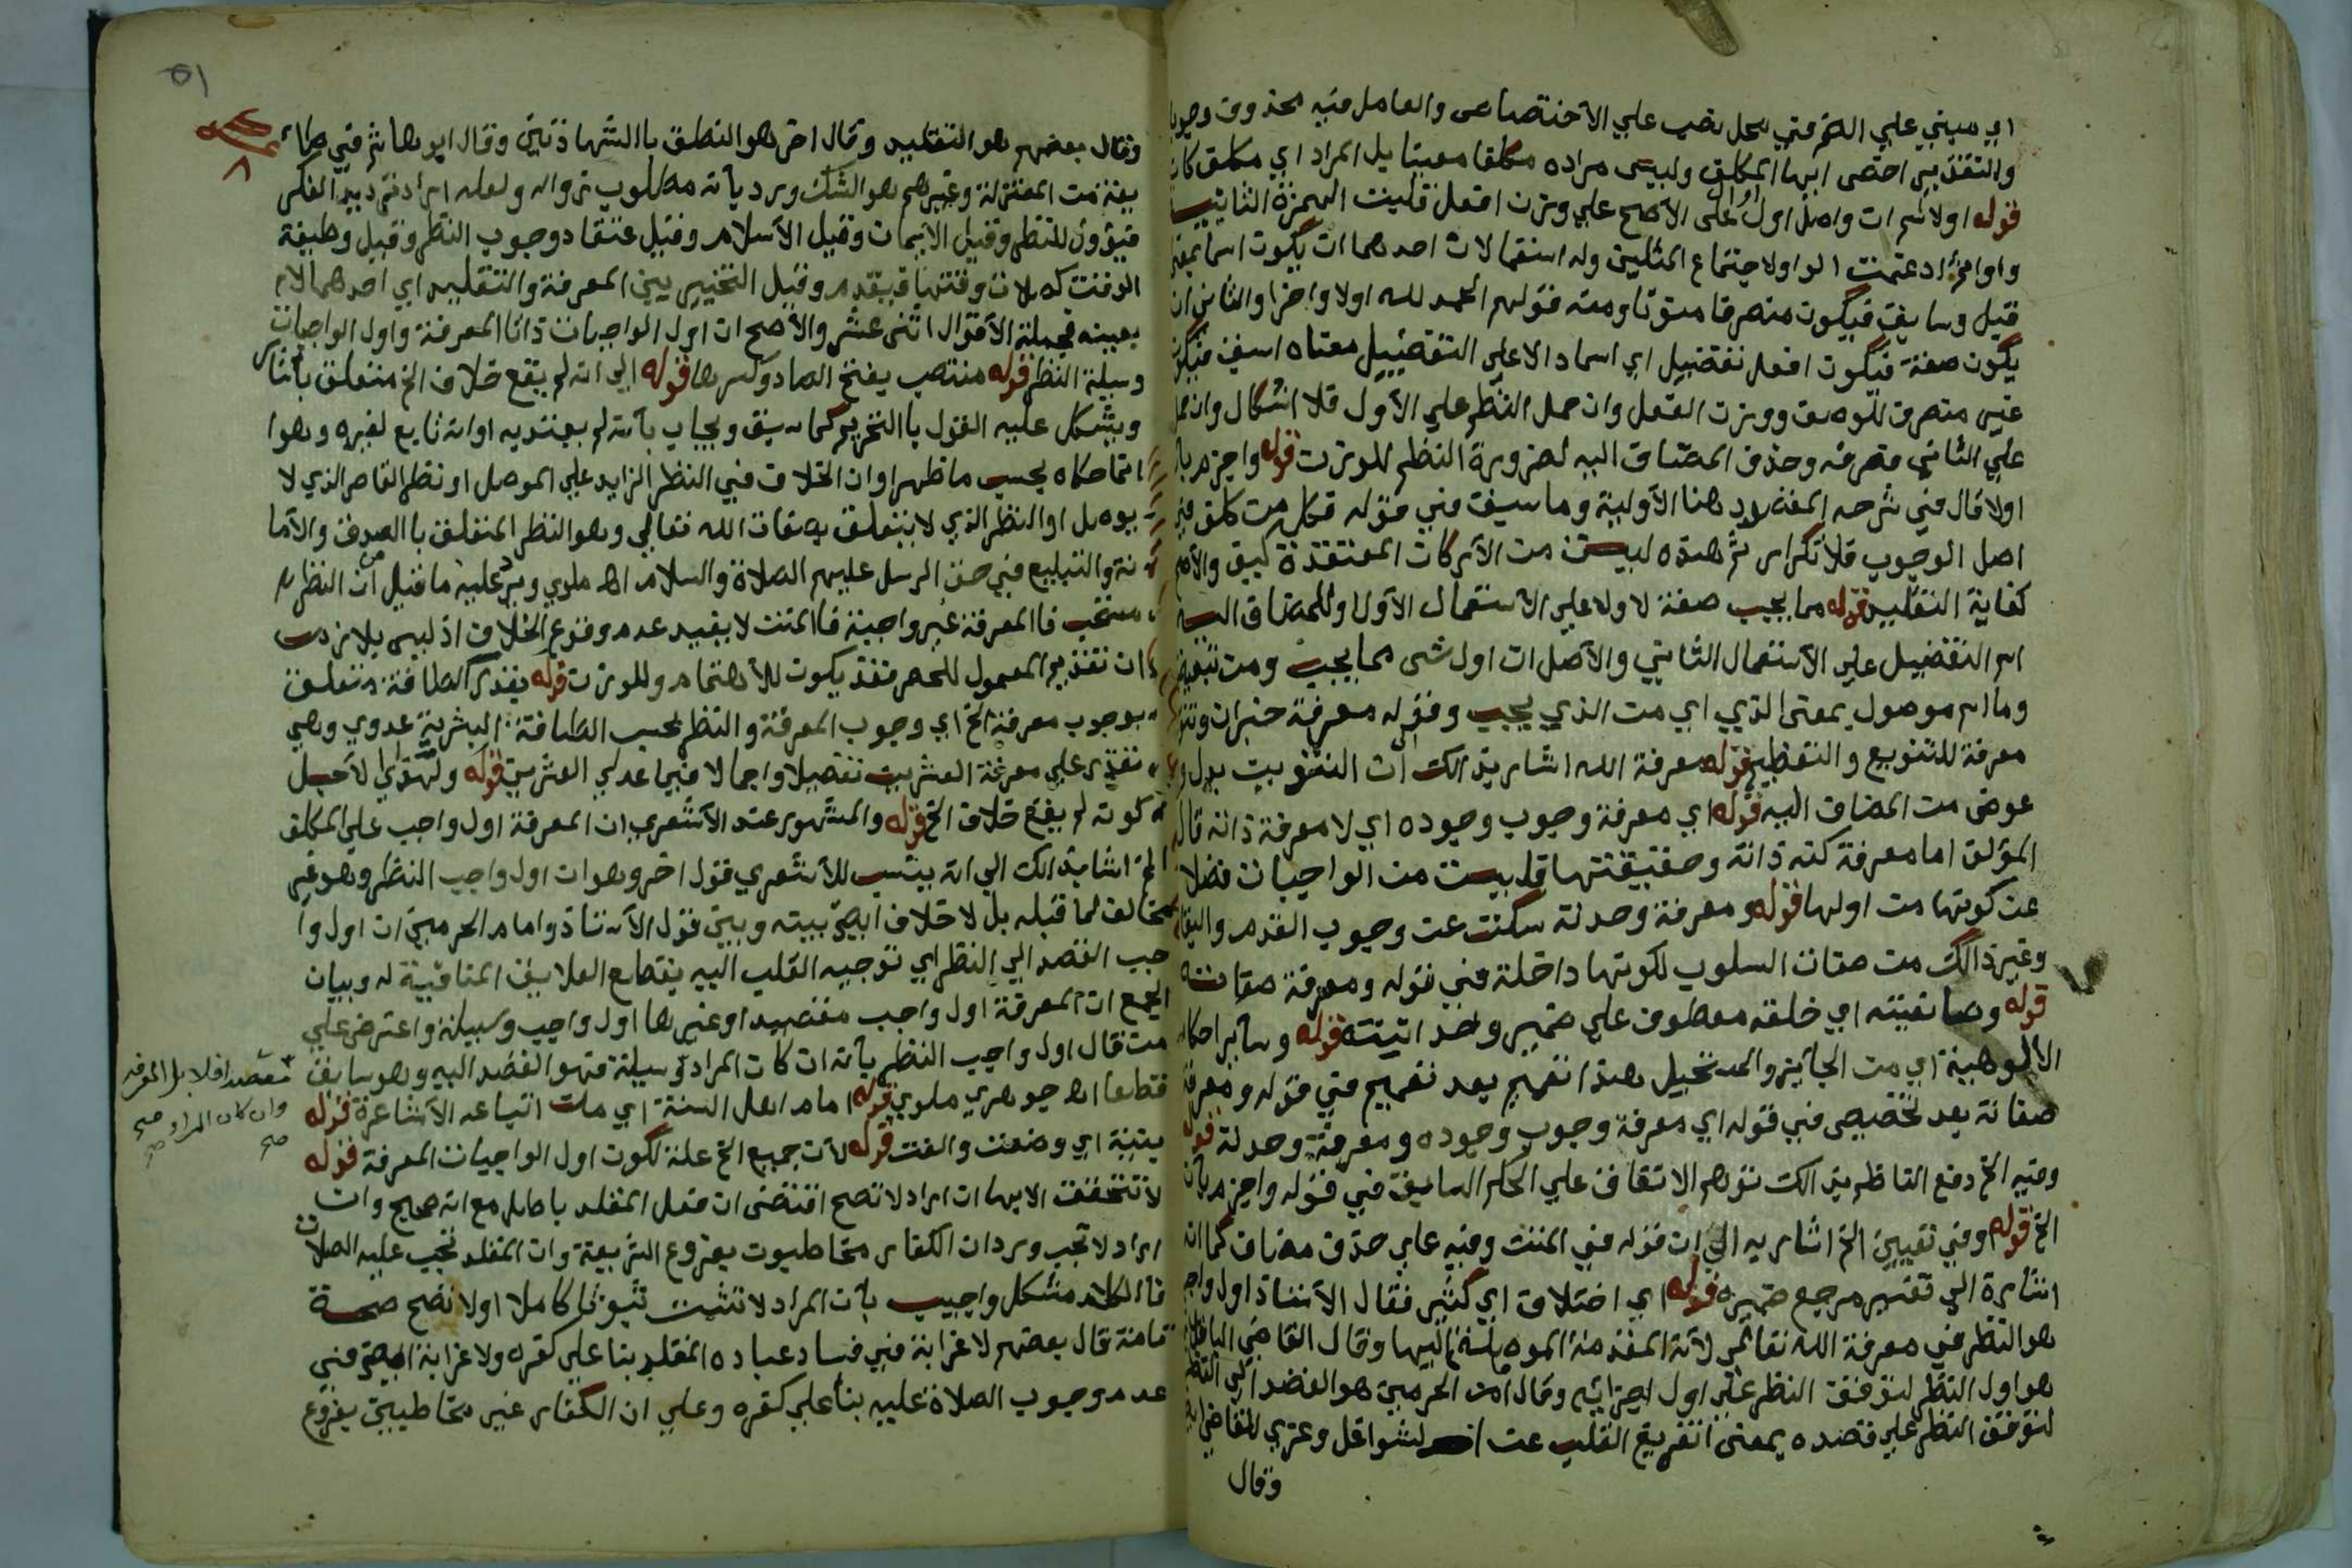 اي مبني علي الضم في محل نصب علي الاختصاص والعامل فيه محذوف وجوبا
والتقدير اخص ايها المكلف وليس مراده مكلفا معينا بل المراد اي مكلف كان
قوله اولا اسم ان واصل اول علي الاصح علي وزن افعل قلبت الهمزة الثانية
واوا ثم ادغمت الواو لاجتماع المثلين وله استعمالات احدهما ان يكون اسما بمعني
قبل وسابق فيكون منصرفا منونا ومنه قولهم الحمد لله اولا واخرا والثاني ان
يكون صفة فيكون افعل تفضيل اي اسما دالا علي التفضيل معناه اسبق فيكون
غير منصرف للوصف ووزن الفعل وان حمل النظم علي الاول فلا اشكال وان حمل
علي الثاني فصرفه وحذف المضاف اليه لضرورة النظم للوزن قوله واجزم بان
اولا قال في شرحه المفيد هنا الاولية وما سبق في قوله فكل من كلف في
اصل الوجوب فلا تكرار ثم هذه ليست من الاركان المعتقدة كيف والاصح
كفاية التقليد قوله مما يجب صفة لاولا علي الاستعمال الاول وللمضاف اليه
اسم التفضيل علي الاستعمال الثاني والاصل ان اول شي مما يجب ومن تبعيضية
وما اسم موصول بمعني الذي اي من الذي يجب وقوله معرفة خبر ان وتنوين
معرفة للتنويع والتعظيم قوله معرفة الله اشار بذالك الي ان التنوين بدل
عوض من المضاف اليه قوله اي معرفة وجوب وجوده اي لا معرفة ذاته قال
المؤلف اما معرفة كنه ذاته وحقيقتها فليست من الواجبات فضلا
عن كونها من اولها قوله ومعرفة وحدته سكت عن وجوب القدم والبقا
وغير ذالك من صفات السلوب لكونها داخلة في قوله ومعرفة صفاته
قوله وصانعيته اي خلقه معطوف علي ضمير وحدانيته قوله وسائر احكام
الالوهية اي من الجايز والمستحيل هذا تعميم بعد تعميم في قوله ومعرفة
صفاته بعد تخصيص في قوله اي معرفة وجوب وجوده ومعرفة وحدته قوله
وفيه الخ دفع الناظم بذالك توهم الاتفاق علي الحكم السابق في قوله واجزم بان
الخ قوله وفي تعيين الخ اشار به الي ان قوله في المتن وفيه علي حذف مضاف كما انه
اشارة الي تفسير مرجع ضميره قوله اي اختلاف اي كثير فقال الاستاذ اول واجب
هو النظر في معرفة الله تعالي لانه المقدمة الموصلة اليها وقال القاضي الباقلاني
هو اول النظر لتوقف النظر علي اول اجزائه وقال امام الحرمين هو القصد الي النظر
لتوقف النظر علي قصده بمعني تفريغ القلب عن الشواغل وعزي للقاضي ايضا
وقال
٥١
وقال بعضهم هو التقليد وقال اخر هو النطق بالشهادتين وقال ابو هاشم في طا
يفة من المعتزلة وغيرهم هو الشك ورد بانه مطلوب زواله ولعله اراد ترديد الفكر
فيؤول للنظر وقيل الايمان وقيل الاسلام وقيل اعتقاد وجوب النظر وقيل وظيفة
الوقت كصلاة وقتها فيقدم وقيل التخيير بين المعرفة والتقليد اي احدهما لا
بعينه فجملة الاقوال اثني عشر والاصح ان اول الواجبات ذاتا المعرفة واول الواجبات
وسيلة النظر قوله منتصب بفتح الصاد وكسرها قوله الي انه لم يقع خلاف الخ متعلق باشار
ويشكل عليه القول بالتحريم كما سبق ويجاب بانه لم يعتد به او انه تابع لغيره وهو
انما حكاه بحسب ما ظهر او ان الخلاف في النظر الزايد علي الموصل او نظر القاصر الذي لا
يوصل او النظر الذي لا يتعلق بصفات الله تعالي وهو النظر المتعلق بالصدق والاما
نة والتبليغ في حق الرسل عليهم الصلاة والسلام اه ملوي ويرد عليه ما قيل من ان النظر
مستحب فالمعرفة غير واجبة فالمتن لا يفيد عدم وقوع الخلاف اذ ليس بلازم
ان تقديم المعمول للحصر فقد يكون للاهتمام وللوزن قوله بقدر الطاقة متعلق
بوجوب معرفة الخ اي وجوب المعرفة والنظر بحسب الطاقة البشرية عدوي وهي
تقدر علي معرفة العشرين تفصيلا واجمالا فيما عدي العشرين قوله ولهذا اي لاجل
كونه لم يقع خلاف الخ قوله والمشهور عند الاشعري ان المعرفة اول واجب علي المكلف
الخ اشار بذالك الي انه ينسب للاشعري قول اخر وهو ان اول واجب النظر وهو غير
مخالف لما قبله بل لا خلاف ايضا بينه وبين قول الاستاذ وامام الحرمين ان اول وا
جب القصد الي النظر اي توجيه القلب اليه بقطع العلايق المنافية له وبيان
الجمع ان المعرفة اول واجب مقصدا وغيرها اول واجب وسيلة واعترض علي
من قال اول واجب النظر بانه ان كان المراد وسيلة فهو القصد اليه وهو سابق
قطعا اه جوهري ملوي قوله امام اهل السنة اي ملت اتباعه الاشاعرة قوله
يتبنة اي وضعت والفت قوله لان جميع الخ علة لكون اول الواجبات المعرفة قوله
لا تتحقق الا بها ان اراد لا تصح اقتضي ان فعل المقلد باطل مع انه صحيح وان
اراد لا تجب ورد ان الكفار مخاطبون بفروع الشريعة وان المقلد تجب عليه الصلاة
فالكلام مشكل واجيب بان المراد لا تثبت ثبوتا كاملا او لا تصح صحة
تامة قال بعضهم لا غرابة في فساد عباده المقلد بنا علي كفره ولا غرابة ايضا في
عدم وجوب الصلاة عليه بنا علي كفره وعلي ان الكفار غير مخاطبين بفروع
مقصدا فلا بل المعرفه
وان كان المراد
صح